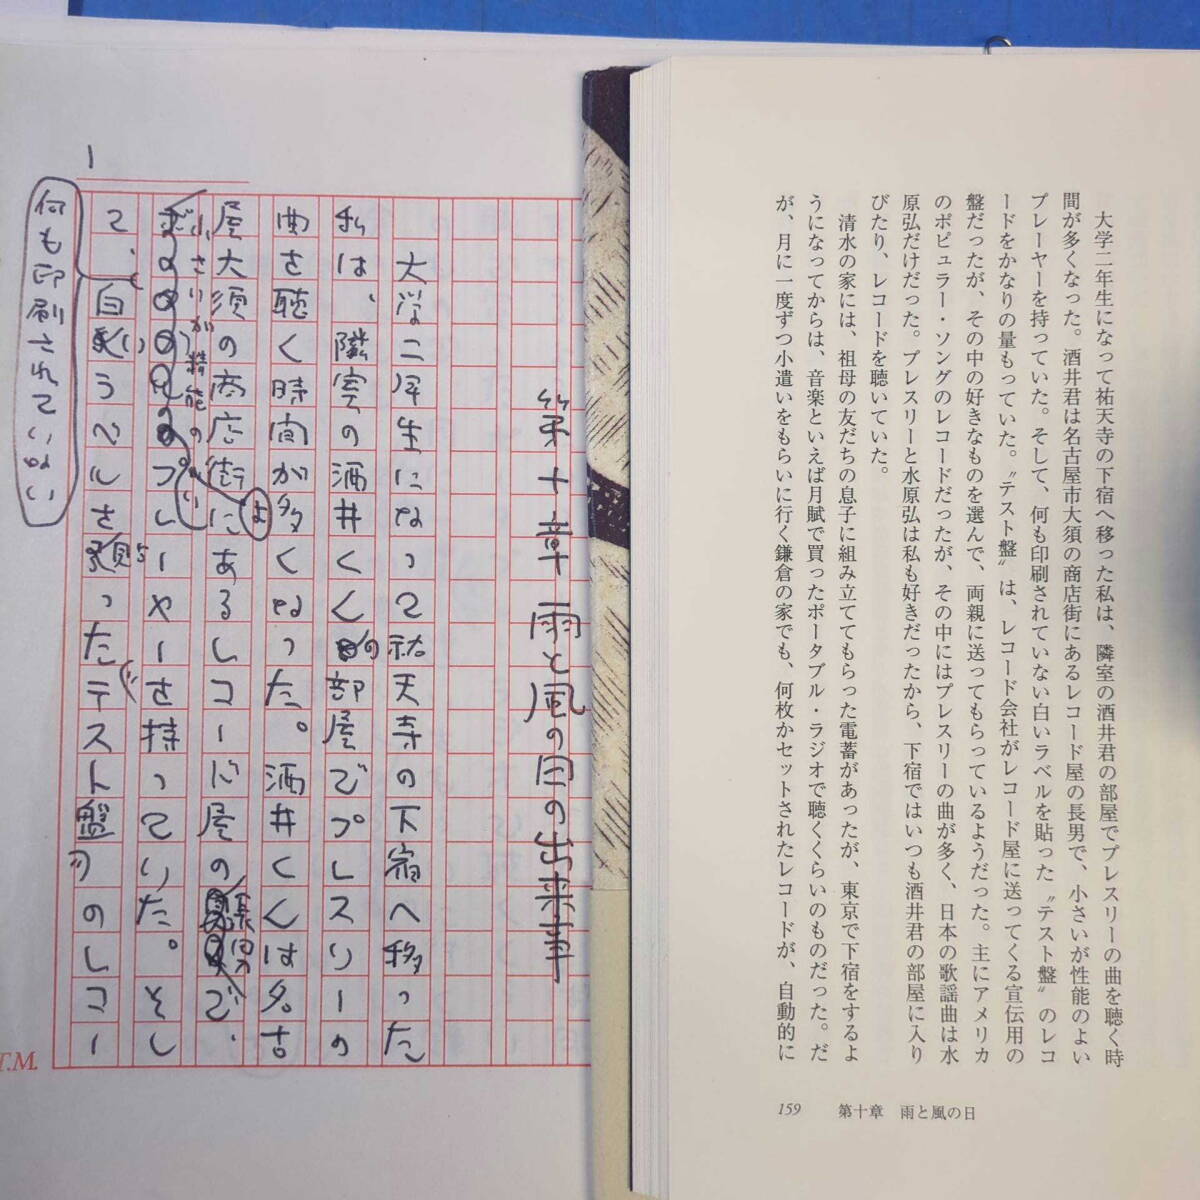 大学二年生になって祐天寺の下宿へ移った私は、隣室の酒井君の部屋でプレスリーの曲を聴く時
間が多くなった。酒井君は名古屋市大須の商店街にあるレコード屋の長男で、小さいが性能のよい
プレーヤーを持っていた。そして、何も印刷されていない白いラベルを貼った〝テスト盤〟のレコ
ードをかなりの量もっていた。〝テスト盤〟は、レコード会社がレコード屋に送ってくる宣伝用の
盤だったが、その中の好きなものを選んで、両親に送ってもらっているようだった。主にアメリカ
のポピュラー・ソングのレコードだったが、その中にはプレスリーの曲が多く、日本の歌謡曲は水
原弘だけだった。プレスリーと水原弘は私も好きだったから、下宿ではいつも酒井君の部屋に入り
びたり、レコードを聴いていた。
清水の家には、祖母の友だちの息子に組み立ててもらった電蓄があったが、東京で下宿をするよ
うになってからは、音楽といえば月賦で買ったポータブル・ラジオで聴くくらいのものだった。だ
が、月に一度ずつ小遣いをもらいに行く鎌倉の家でも、何枚かセットされたレコードが、自動的に
159 第十章 雨と風の日
第十章 雨と風の日の出来事
大学二年生になって祐天寺の下宿へ移った
私は、隣室の酒井くんの部屋でプレスリーの
曲を聴く時間が多くなった。酒井くんは名古
屋大須の商店街にあるレコード屋の長男で、
小さいが性能のよい
プレーヤーを持っていた。そし
て、白いラベルを貼ったテスト盤〟のレコー
何も印刷されていない
1
T.M.